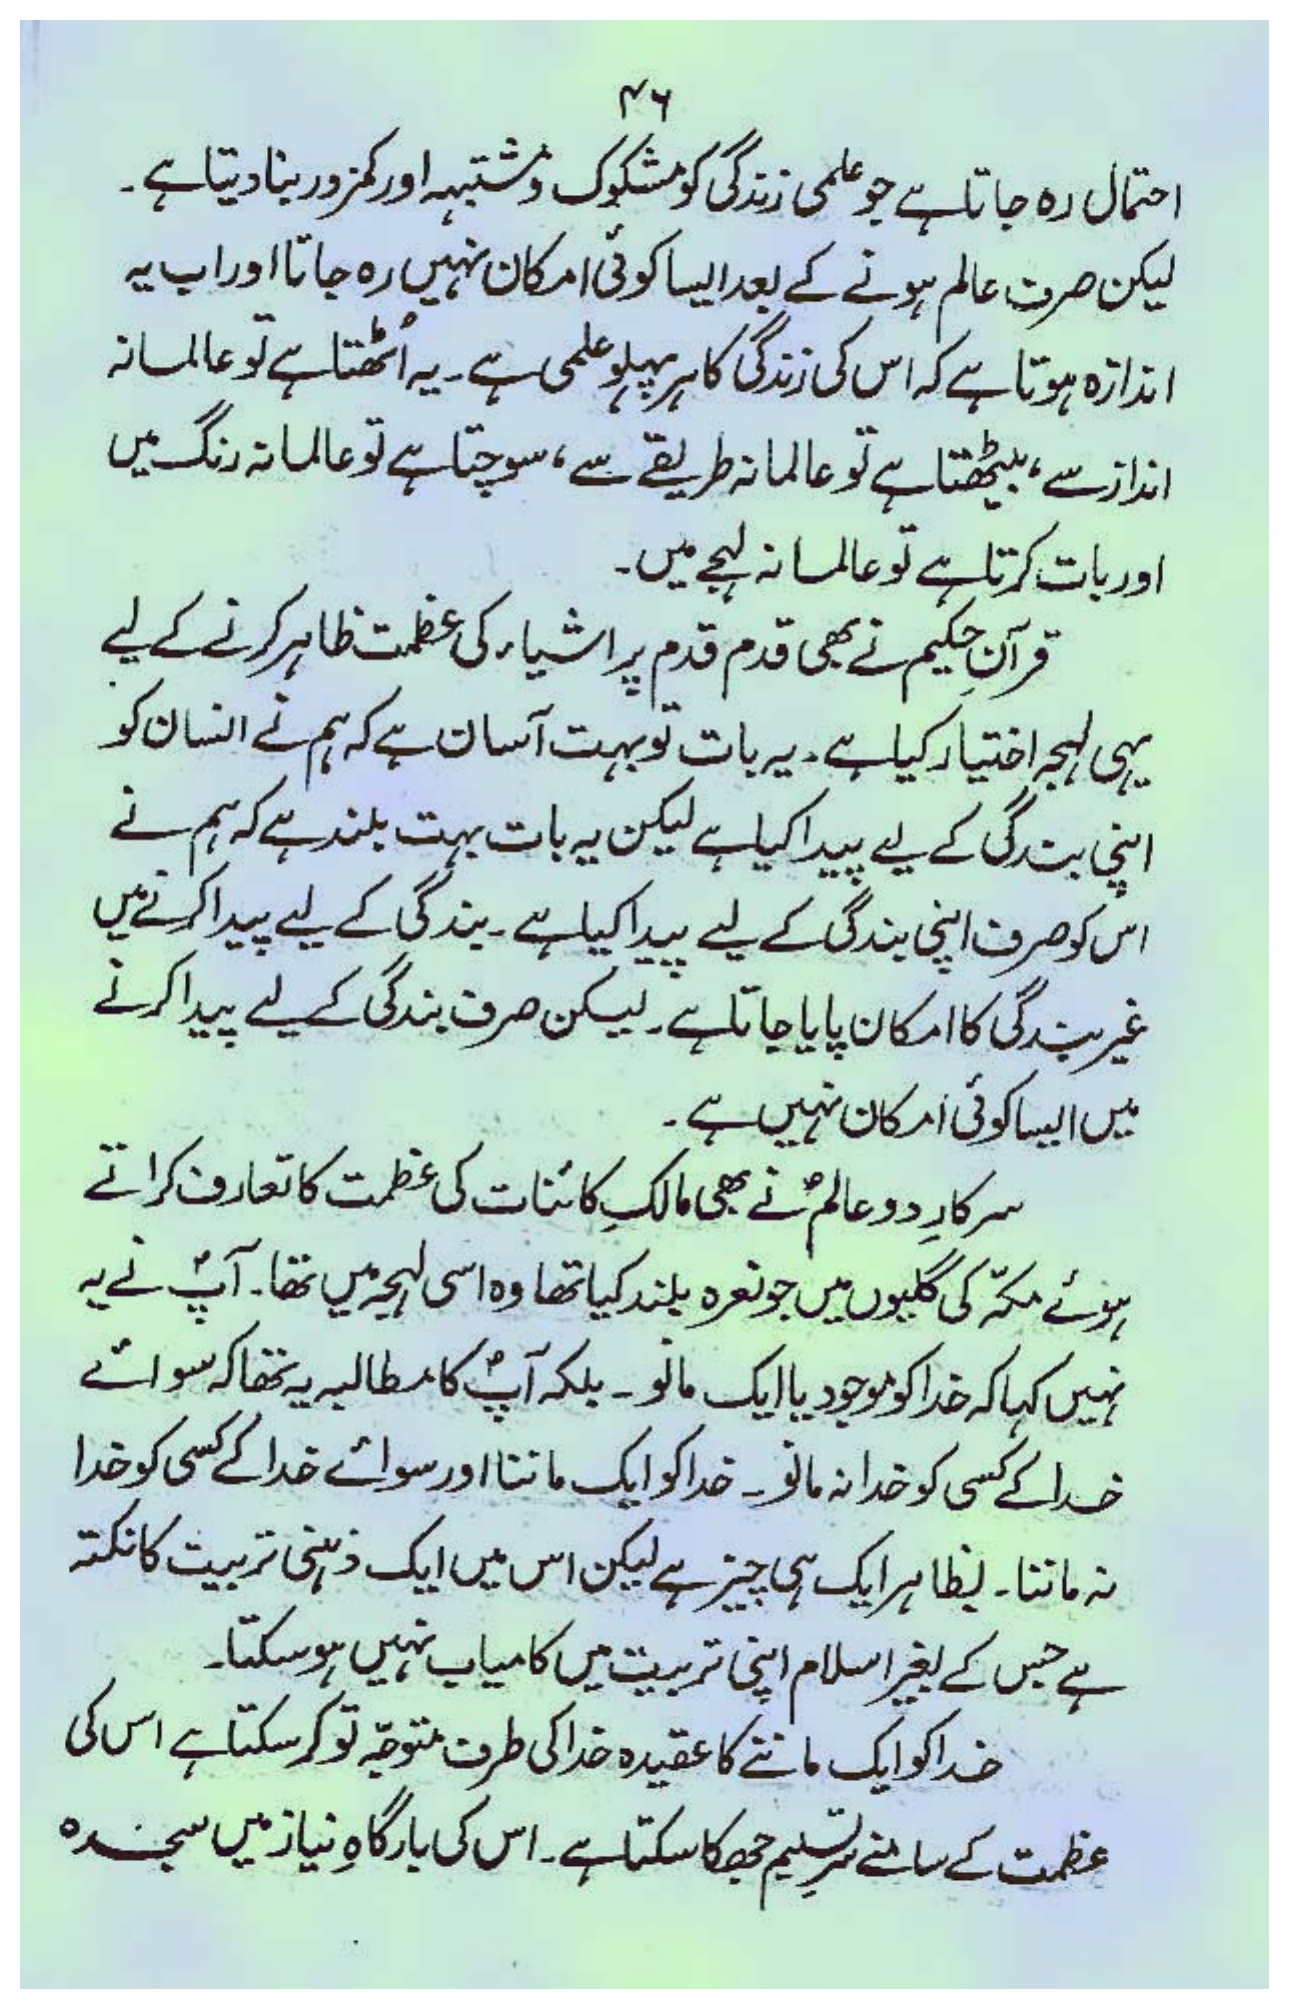 ۴۶
احتمال رہ جاتا ہے جو علمی زندگی کو مشکوک و مشتبہہ اور کمزور بنا دیتا ہے۔
لیکن صرف عالم ہونے کے بعد ایسا کوئی امکان نہیں رہ جاتا اور اب یہ
اندازہ ہوتا ہے کہ اس کی زندگی کا ہر پہلو علمی ہے۔ یہ اُٹھتا ہے تو عالمانہ
انداز سے، بیٹھتا ہے تو عالمانہ طریقے سے، سوچتا ہے تو عالمانہ رنگ میں
اور بات کرتا ہے تو عالمانہ لہجے میں۔
قرآنِ حکیم نے بھی قدم قدم پر اشیاء کی عظمت ظاہر کرنے کے لیے
یہی لہجہ اختیار کیا ہے۔ یہ بات تو بہت آسان ہے کہ ہم نے انسان کو
اپنی بندگی کے لیے پیدا کیا ہے لیکن یہ بات بہت بلند ہے کہ ہم نے
اس کو صرف اپنی بندگی کے لیے پیدا کیا ہے۔ بندگی کے لیے پیدا کرنے میں
غیر بندگی کا امکان پایا جاتا ہے۔ لیکن صرف بندگی کے لیے پیدا کرنے
میں ایسا کوئی امکان نہیں ہے۔
سرکارِ دو عالمؐ نے بھی مالکِ کائنات کی عظمت کا تعارف کراتے
ہوئے مکّہ کی گلیوں میں جو نعرہ بلند کیا تھا وہ اسی لہجہ میں تھا۔ آپؐ نے یہ
نہیں کہا کہ خدا کو موجود یا ایک مانو۔ بلکہ آپؐ کا مطالبہ یہ تھا کہ سوائے
خدا کے کسی کو خدا نہ مانو۔ خدا کو ایک ماننا اور سوائے خدا کے کسی کو خدا
نہ ماننا۔ بظاہر ایک ہی چیز ہے لیکن اس میں ایک ذہنی تربیت کا نکتہ
ہے جس کے بغیر اسلام اپنی تربیت میں کامیاب نہیں ہو سکتا۔
خدا کو ایک ماننے کا عقیدہ خدا کی طرف متوجّہ تو کر سکتا ہے اس کی
عظمت کے سامنے سرِ تسلیم جھکا سکتا ہے۔ اس کی بارگاہِ نیاز میں سجدہ